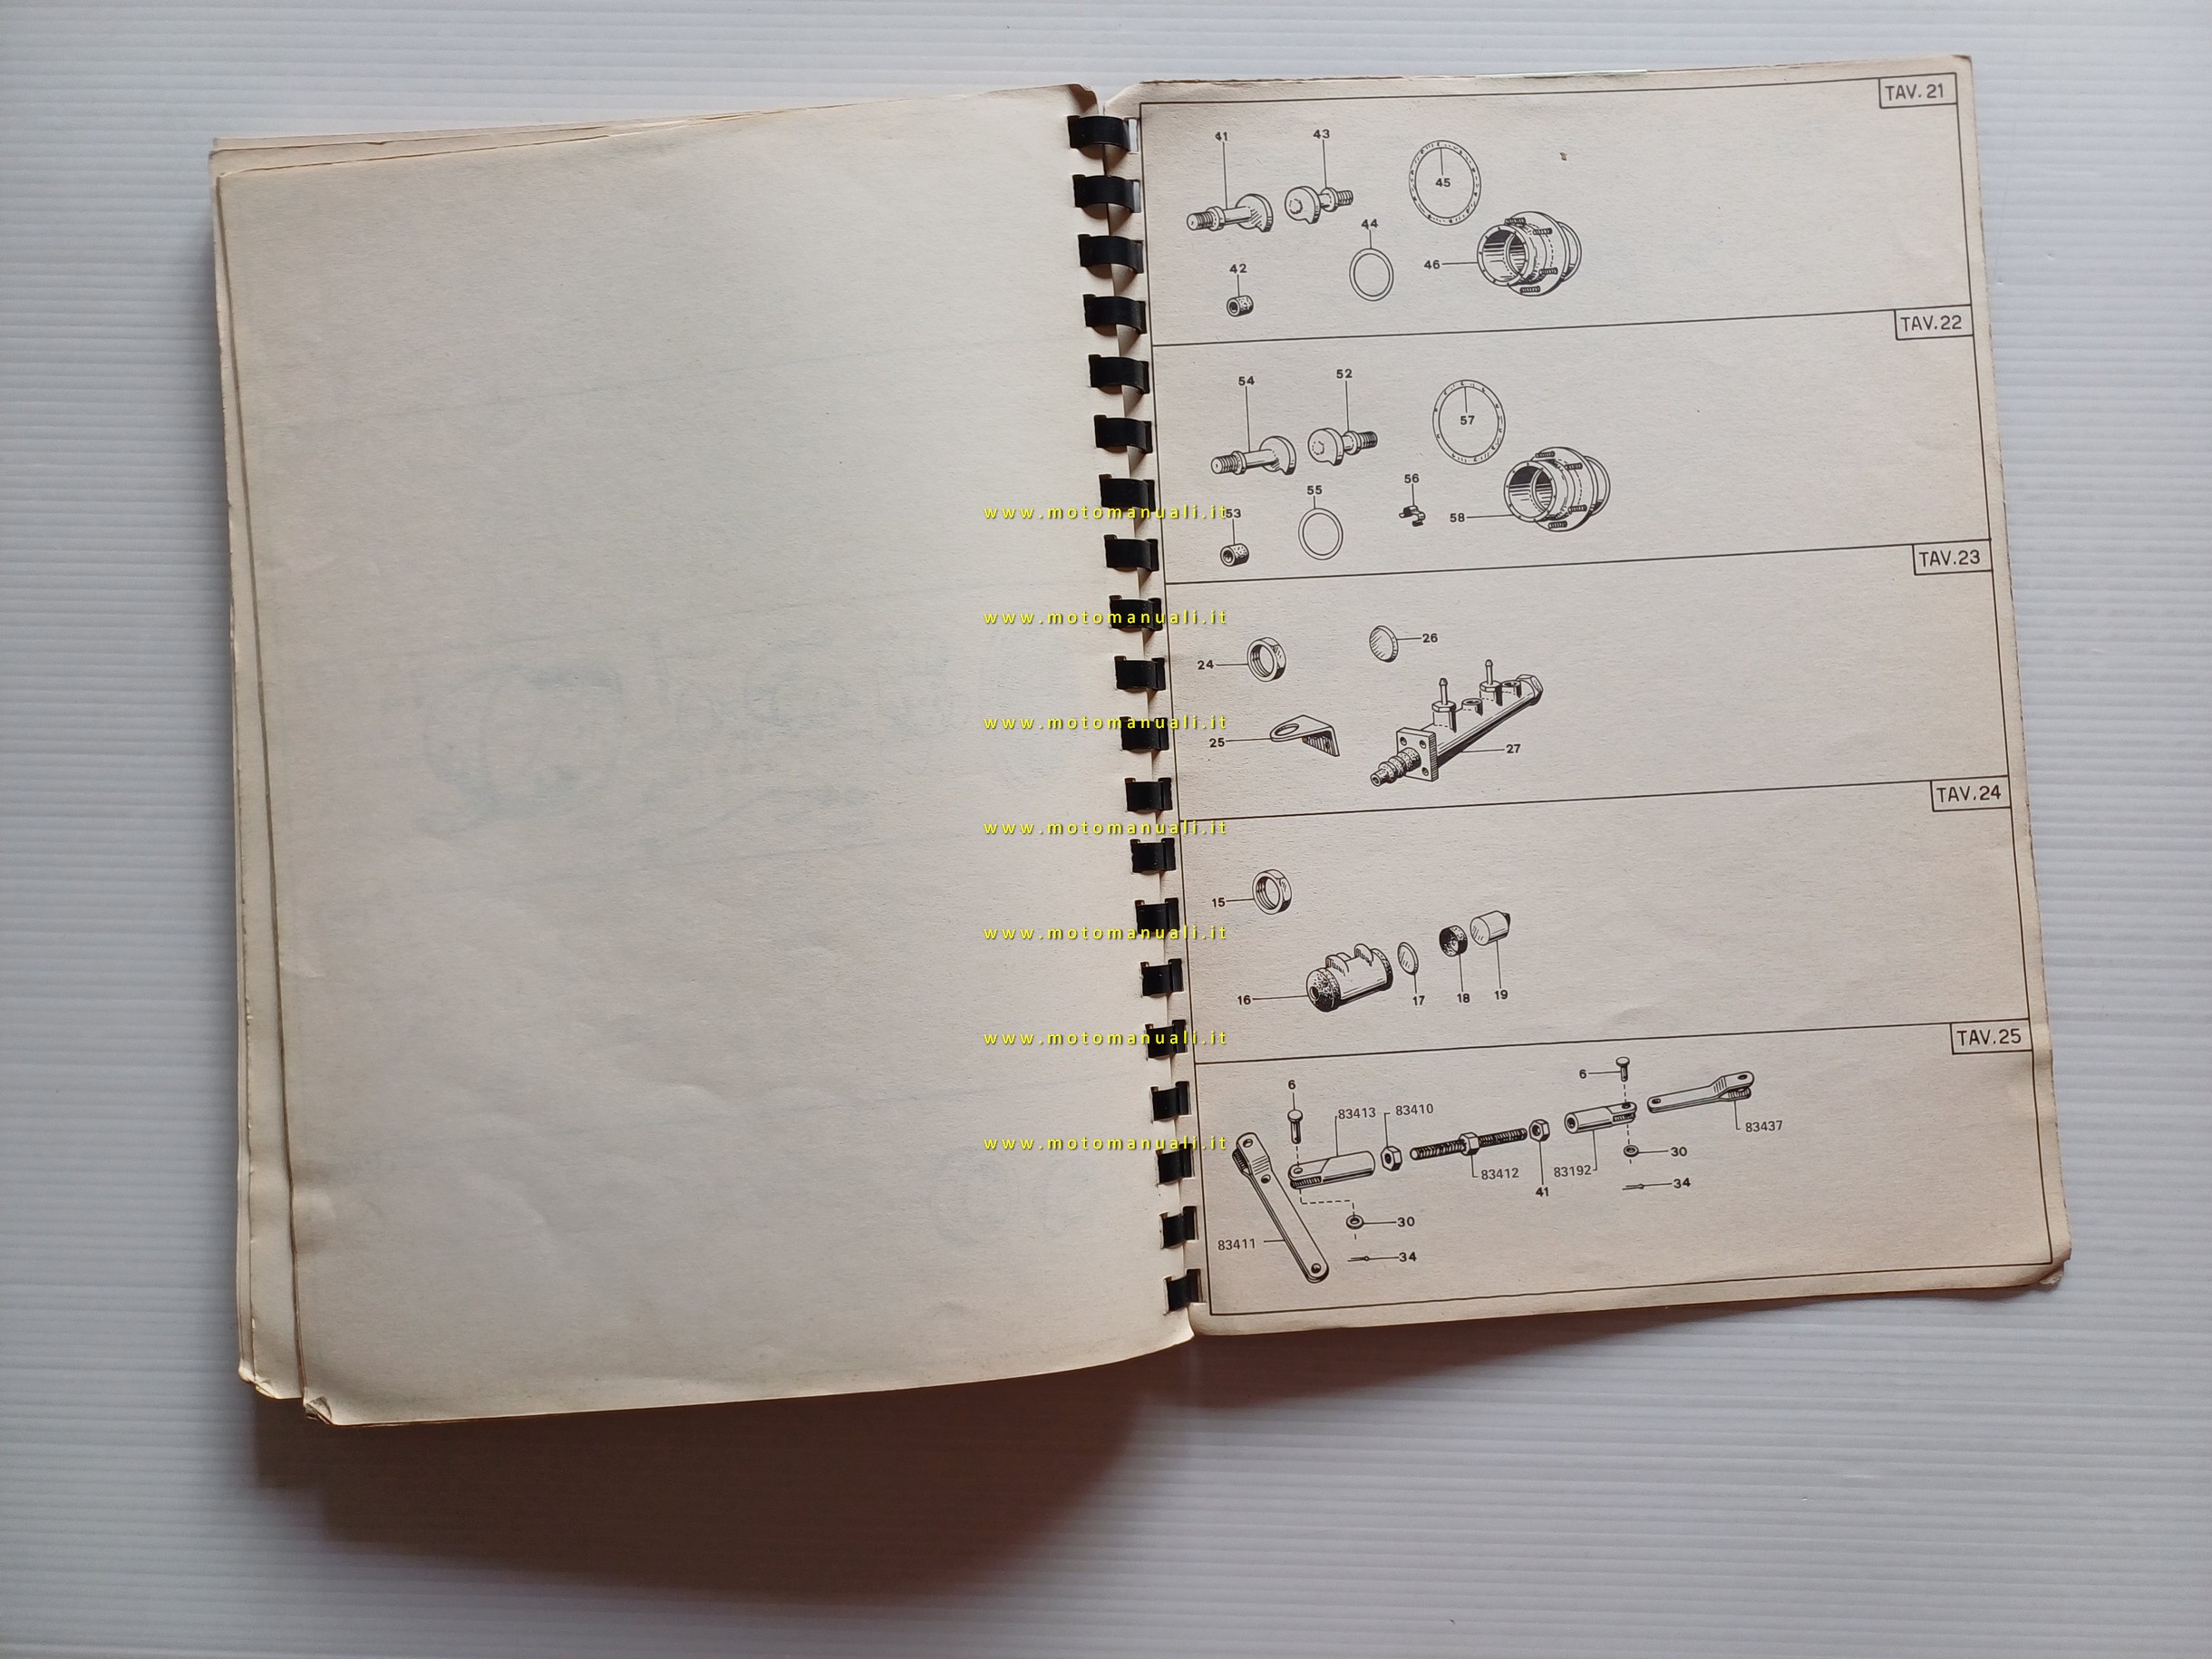 TAV. 21
41
43
45
44
42
46
TAV.22
54
52
57
56
55
53
58
TAV.23
24
26
25
27
TAV.24
15
16
17
18
19
TAV.25
6
6
83413
83410
83437
83412
83192
41
30
34
30
34
83411
www.motomanuali.it
www.motomanuali.it
www.motomanuali.it
www.motomanuali.it
www.motomanuali.it
www.motomanuali.it
www.motomanuali.it